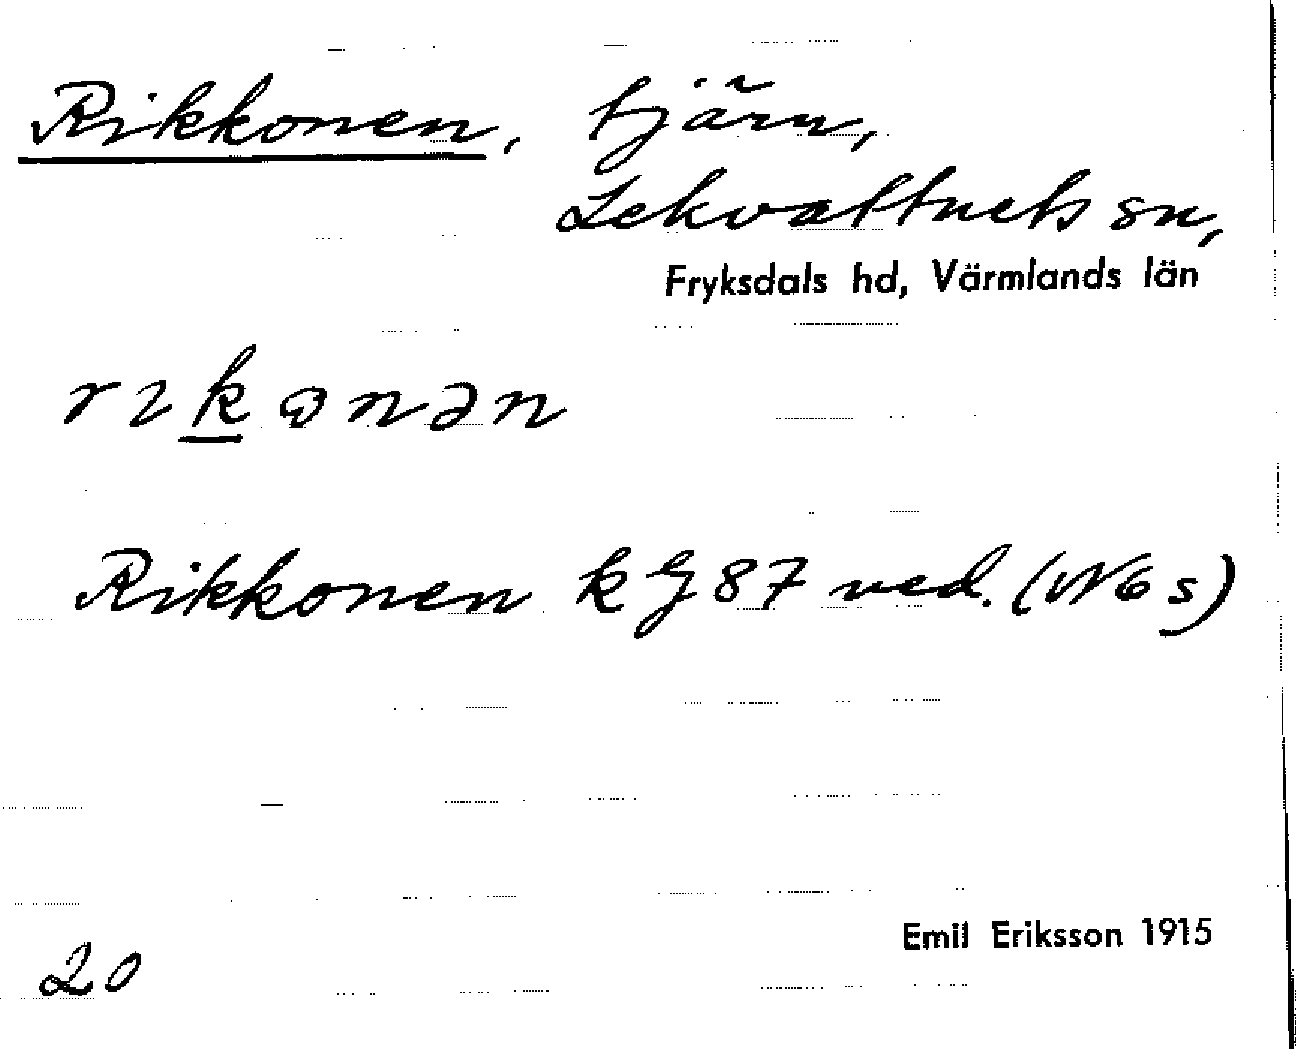 Rikkonen, tjärn,
Lekvattnets sn,
Fryksdals hd, Värmlands län
rikonən
Rikkonen k G 87 ved. (N 6 s)
20
Emil Eriksson 1915